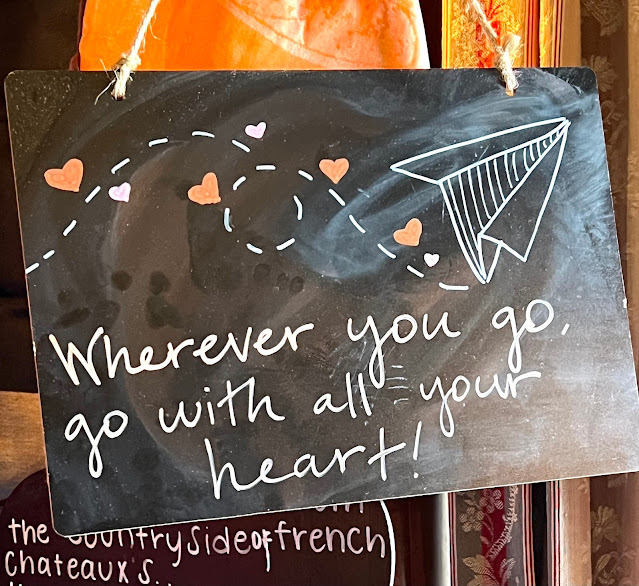 Wherever you go,
go with all your
heart!
the countryside of french
chateaux's